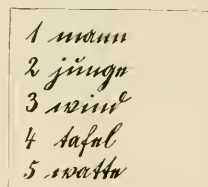 1 mann
2 junge
3 wind
4 tafel
5 watte